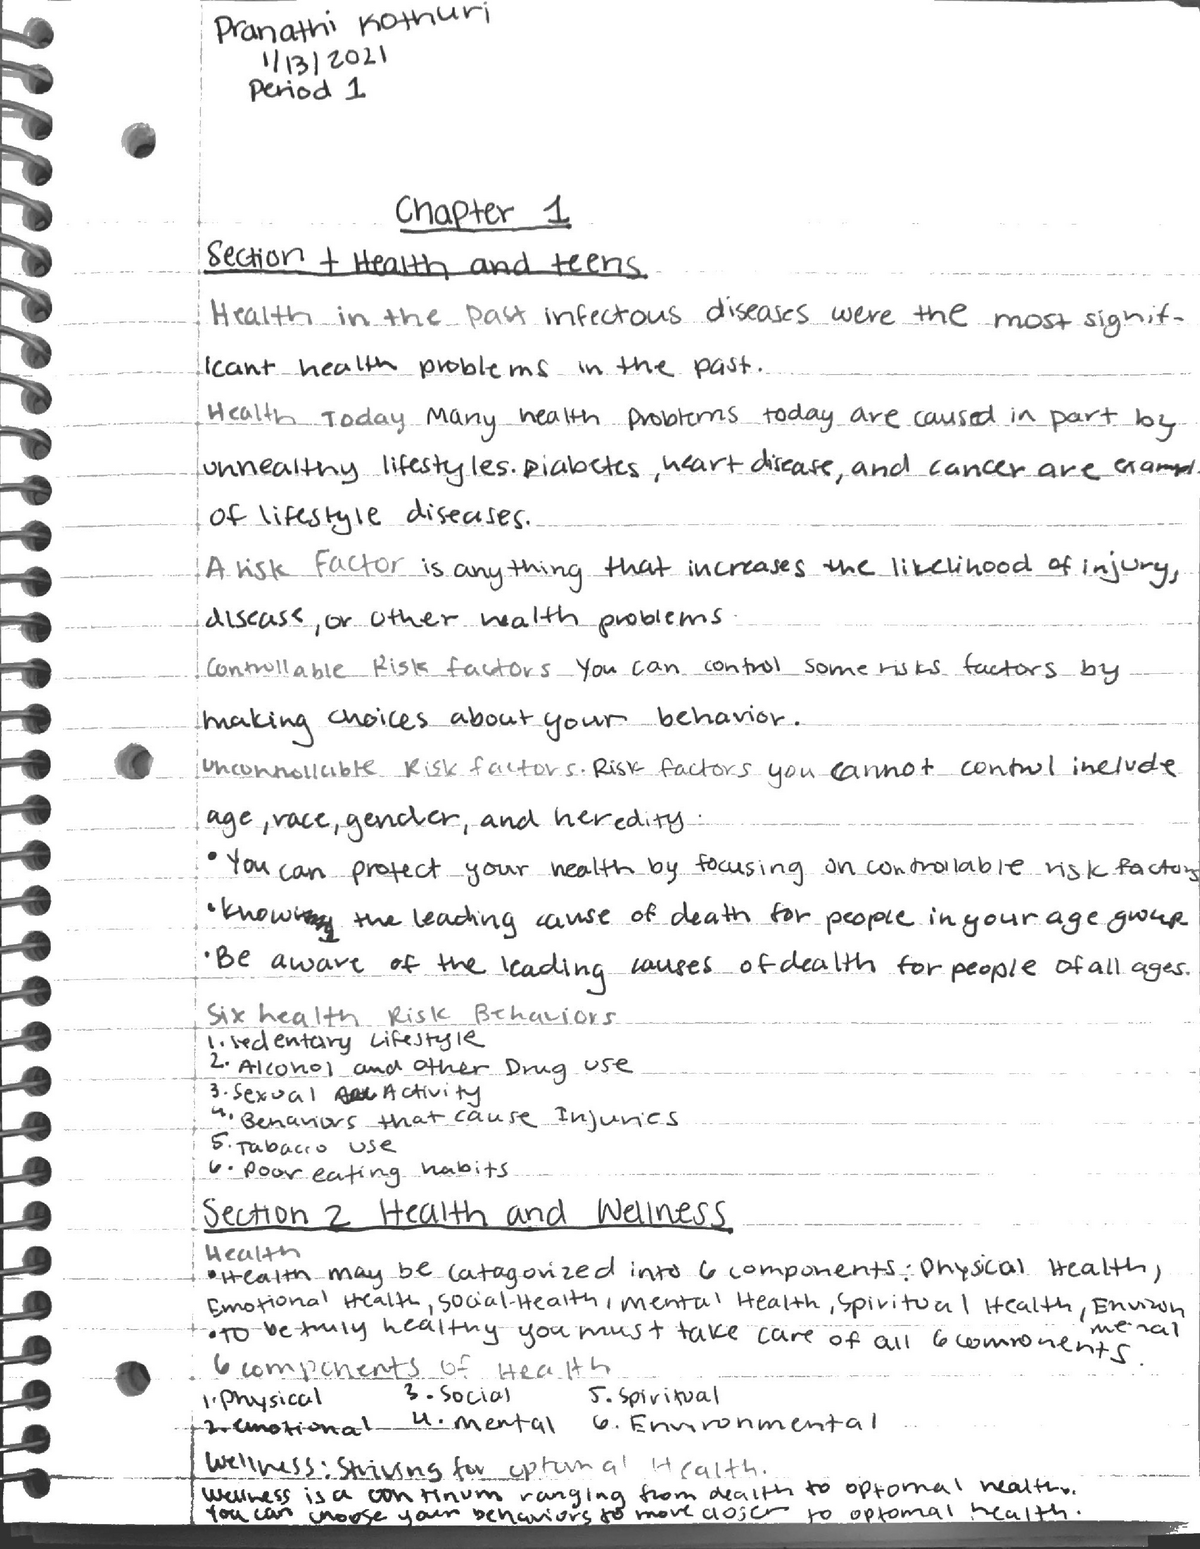 Pranathi Kothuri
1/13/2021
Period 1
Chapter 1
Section 1 Health and teens
Health in the past infectous diseases were the most signif-
icant health problems in the past.
Health Today Many health problems today are caused in part by
unhealthy lifestyles. Diabetes, heart disease, and cancer are exampl.
of lifestyle diseases.
A risk Factor is anything that increases the likelihood of injury,
disease, or other health problems.
Controllable Risk factors You can control some risks factors by
making choices about your behavior.
Uncontrollable Risk factors. Risk factors you cannot control include
age, race, gender, and heredity.
• You can protect your health by focusing on controllable risk factors
• Knowing the leading cause of death for people in your age group
• Be aware of the leading causes of dealth for people of all ages.
Six health Risk Behaviors
1. Sedentary Lifestyle
2. Alcohol and other Drug use
3. Sexual Activity
4. Behaviors that cause Injuries
5. Tabacco use
6. Poor eating habits
Section 2 Health and Wellness
Health
• Health may be catagorized into 6 components: Physical Health,
Emotional Health, Social-Health, mental Health, Spiritual Health, Environ
mental
• To be truly healthy you must take care of all 6 components.
6 components of Health
1. Physical 3. Social 5. Spiritual
2. emotional 4. Mental 6. Environmental
Wellness: Striving for optumal Health.
Wellness is a continum ranging from dealth to optomal health.
You can choose your behaviors to move closer to optomal health.